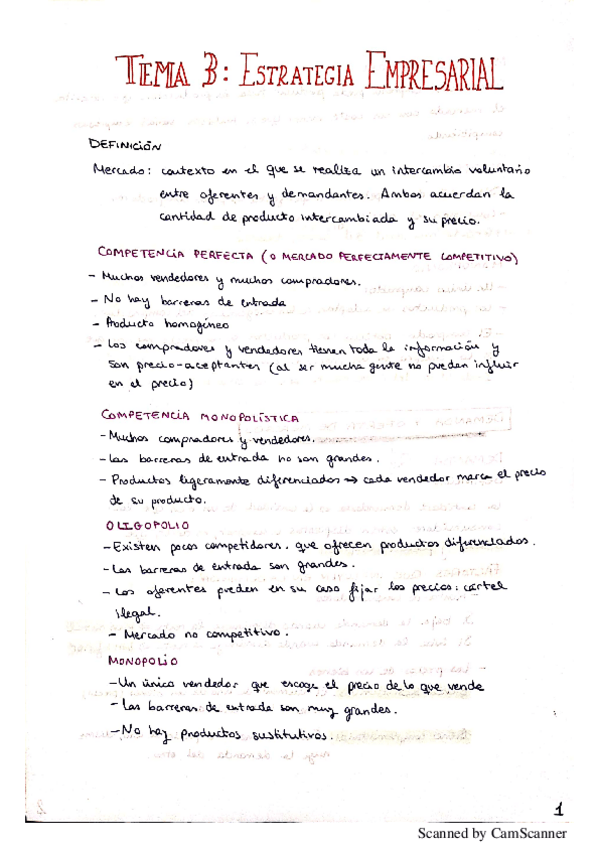 TEMA 3: ESTRATEGIA EMPRESARIAL
DEFINICIÓN
Mercado: contexto en el que se realiza un intercambio voluntario
entre oferentes y demandantes. Ambos acuerdan la
cantidad de producto intercambiada y su precio.
COMPETENCIA PERFECTA (O MERCADO PERFECTAMENTE COMPETITIVO)
- Muchos vendedores y muchos compradores.
- No hay barreras de entrada
- Producto homogéneo
- Los compradores y vendedores tienen toda la información y
son precio-aceptantes (al ser mucha gente no pueden influir
en el precio)
COMPETENCIA MONOPOLÍSTICA
- Muchos compradores y vendedores.
- Las barreras de entrada no son grandes.
- Productos ligeramente diferenciados → cada vendedor marca el precio
de su producto.
OLIGOPOLIO
- Existen pocos competidores. que ofrecen productos diferenciados.
- Las barreras de entrada son grandes.
- Los oferentes pueden en su caso fijar los precios: cártel
ilegal.
- Mercado no competitivo.
MONOPOLIO
- Un único vendedor que escoge el precio de lo que vende
- Las barreras de entrada son muy grandes.
- No hay productos sustitutivos.
1
Scanned by CamScanner